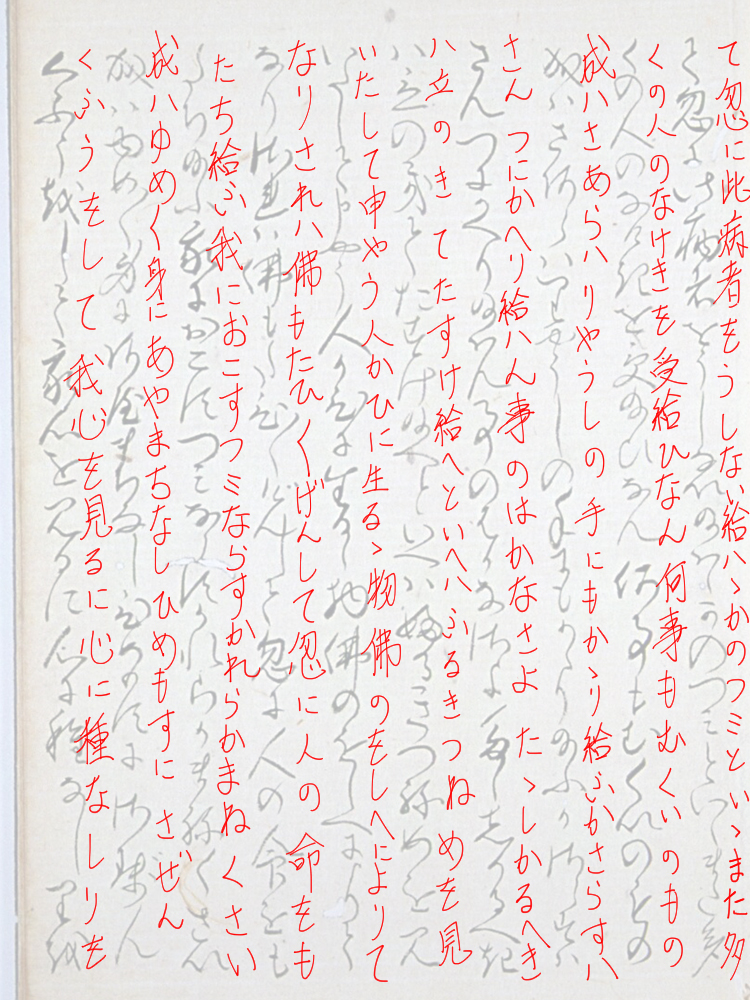 て忽に此病者をうしない給ハヽかのつミといゝまた多
くの人のなけきを受給ひなん何事もむくいのもの
成ハさあらハりやうしの手にもかゝり給ふかさらすハ
さんつにかへり給ハん事のはかなさよたゝしかるへき
ハ立のきてたすけ給へといへハふるきつねめを見
いたして申やう人かひに生るゝ物佛のをしへによりて
なりされハ佛もたひくげんして忽に人の命をも
たち給ふ我におこすつミならすかれらかまねくさい
成ハゆめく身にあやまちなしひめもすにさぜん
くふうをして我心を見るに心に種なしりを